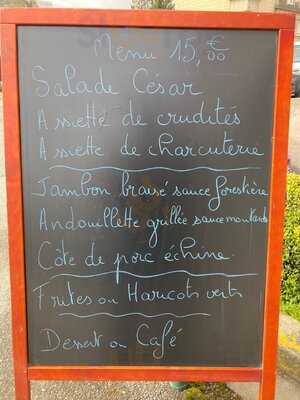 Menu 15,€00
Salade César
Assiette de crudités
Assiette de charcuterie
Jambon braisé sauce forestière
Andouillette grillée sauce moutarde
Côte de porc échine
Frites ou Haricots verts
Dessert ou Café